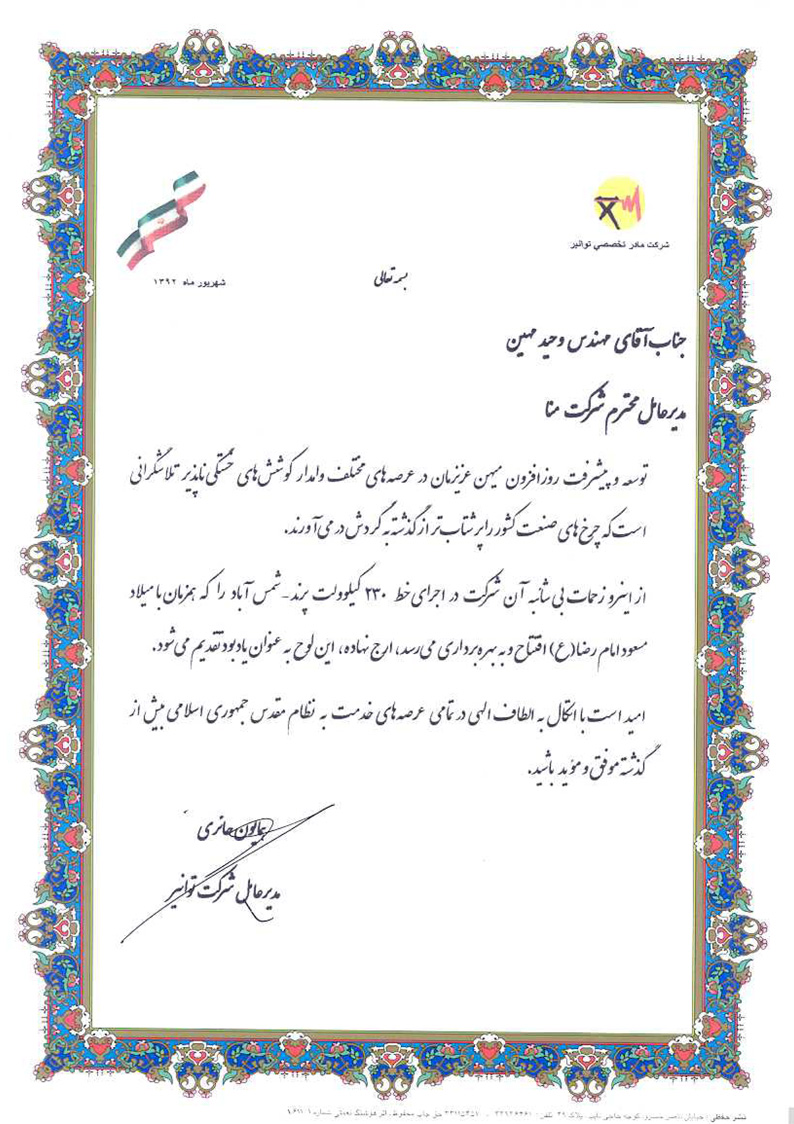 شرکت مادر تخصصي توانير
شهریور ماه ۱۳۹۲
بسمه تعالی
جناب آقای مهندس وحید مهین
مدیرعامل محترم شرکت منا
توسعه و پیشرفت روزافزون میهن عزیزمان در عرصه‌های مختلف وامدار کوشش‌های خستگی ناپذیر تلاشگرانی
است که چرخ‌های صنعت کشور را پرشتاب تر از گذشته به گردش در می‌آورند.
از اینرو زحمات بی شائبه آن شرکت در اجرای خط ۲۳۰ کیلوولت پرند - شمس آباد را که همزمان با میلاد
مسعود امام رضا(ع) افتتاح و به بهره برداری می‌رسد، ارج نهاده، این لوح به عنوان یادبود تقدیم می‌شود.
امید است با اتکال به الطاف الهی در تمامی عرصه‌های خدمت به نظام مقدس جمهوری اسلامی بیش از
گذشته موفق و مؤید باشید.
همایون حائری
مدیرعامل شرکت توانیر
نشر حفظی : خیابان ناصر خسرو، کوچه حاجی نایب، پلاک ۲۹ تلفن: